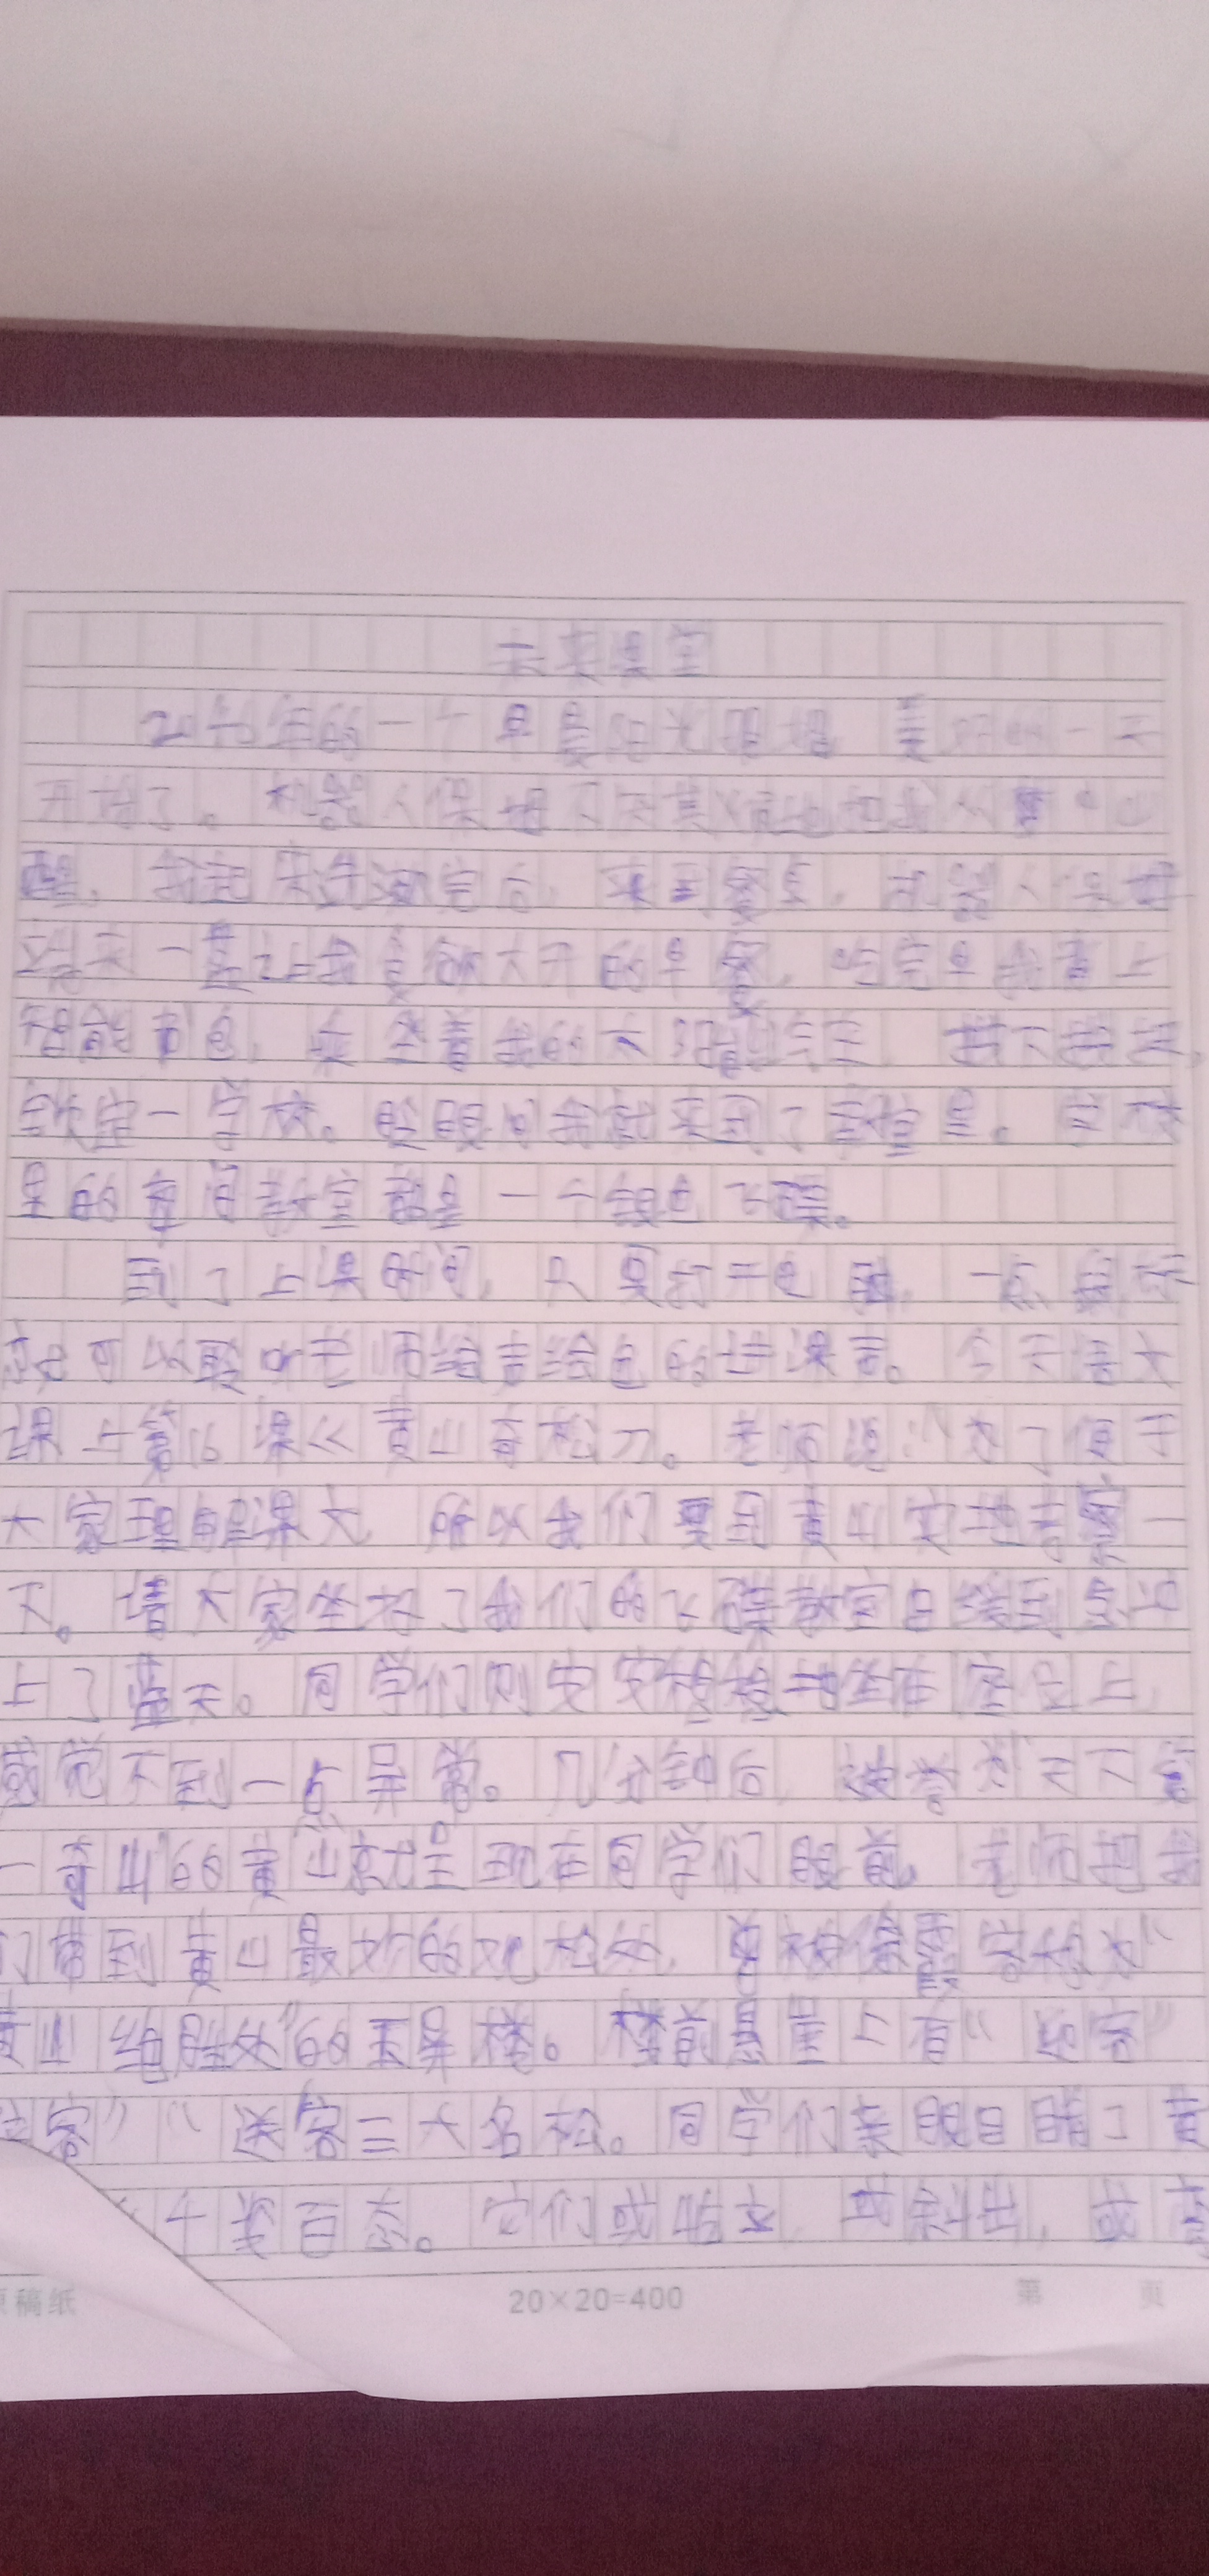 未来课堂
20 年的一个早晨阳光明媚 美好的一天
开始了。机器人保姆 把我从 中
醒,我 完后,来到餐桌,机器人保姆
端来一 让我 大开的早餐,吃完早 我背上
智能书包,乘坐着我的
学校。眨眼间我就来到了教室里。学校
里的每间教室都是一个银色飞碟。
到了上课时间,只见打开电脑,一点
就可以聆听老师绘声绘色的讲课声。今天语文
课上第16课《黄山奇松》。老师说:“为了便于
大家理解课文 所以我们要到黄山实地考察一
下。请大家坐好了我们的飞碟教室
上了蓝天。同学们则安安稳稳地坐在座位上,
感觉不到一点异常。几分钟后,被誉为“天下第
一奇山”的黄山就呈现在同学们眼前。老师把我
们带到黄山最好的观松处, 被徐霞客称为“
黄山绝胜处”的玉屏楼。楼前悬崖上有“迎客”
客”“送客三大名松。同学们亲眼目睹了黄
千姿百态。它们或 ,或斜出,或
原稿纸 20×20=400 第 页